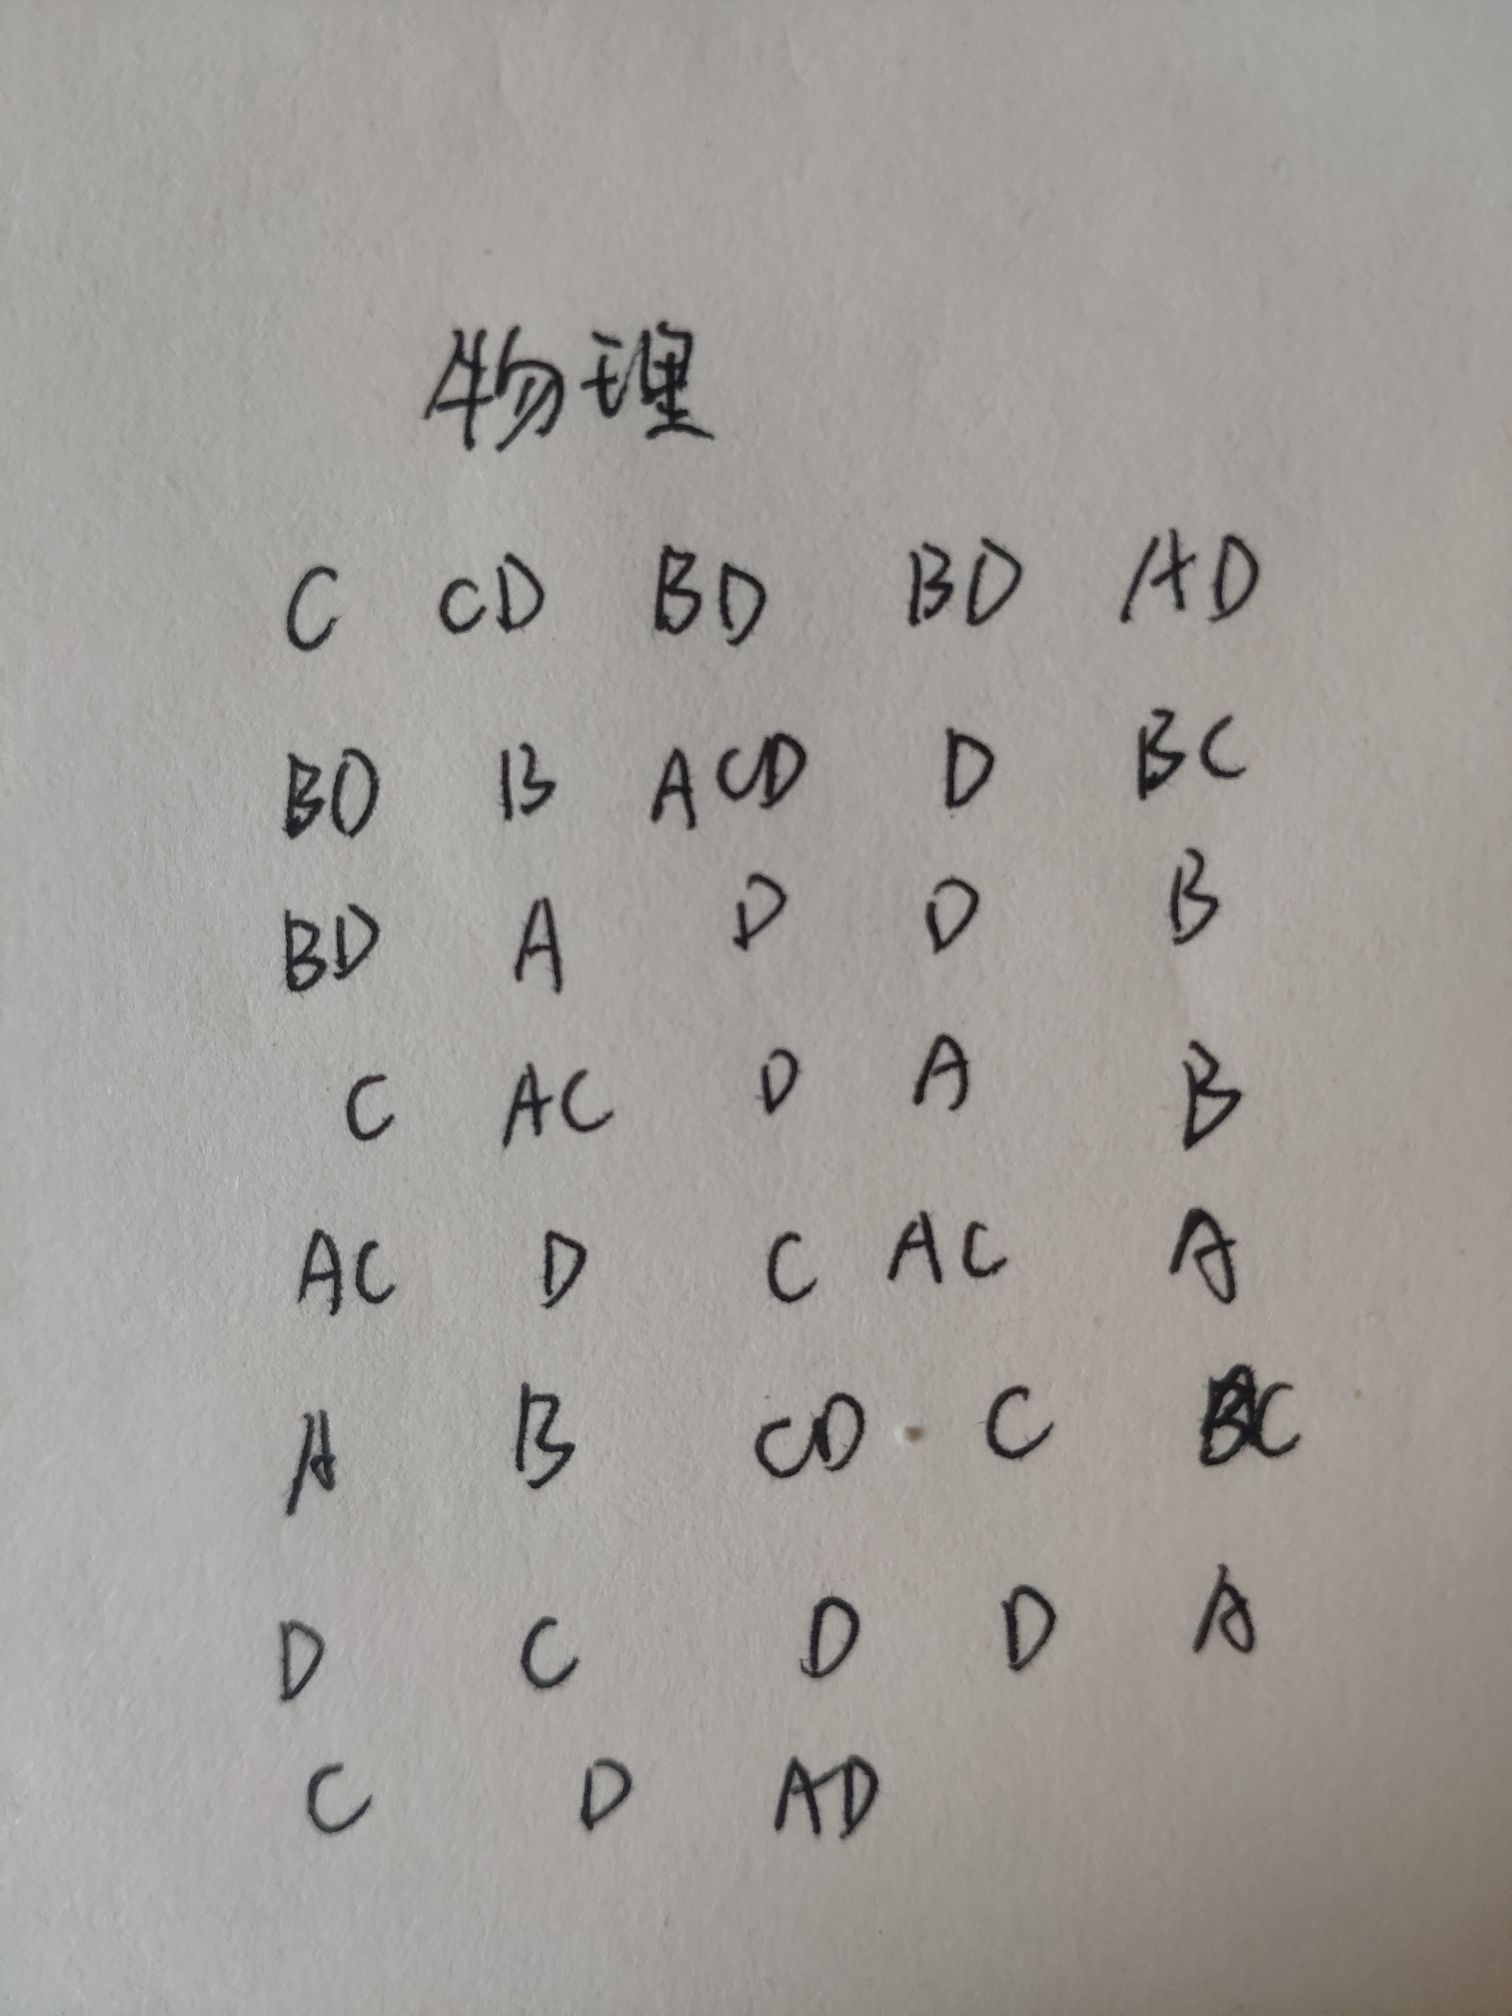 物理
C CD BD BD AD
BD B ACD D BC
BD A D D B
C AC D A B
AC D C AC A
A B CD C BC
D C D D A
C D AD